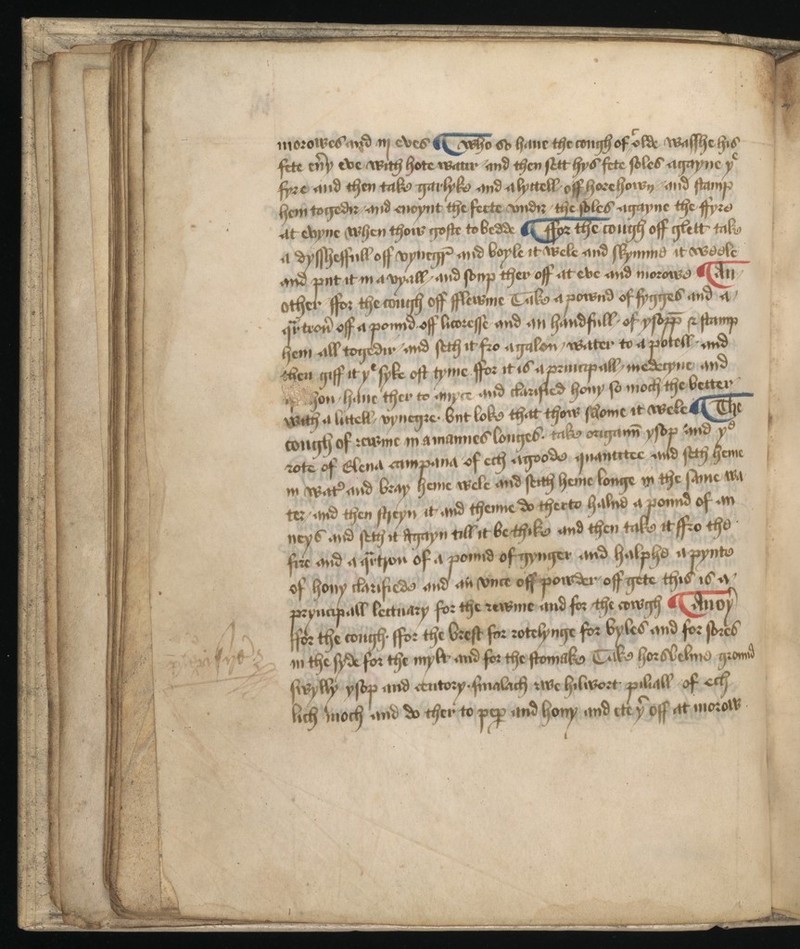 morowes and iij eves ¶ Who so haue the cough of colde wasshe his
fete eu'y eve with hote water and then sett hys fete soles agayne yͤ
fyre and then take garlyke and a lyttell off horehown and stamp
hem togedir and enoynt the feete vndir the soles agayne the ffyre
at evyne when thow goste to bedde ¶ Ffor the cough off glett take
a dysshefull off vynegr' and boyle it wele and skymme it weele
and put it in a vyall and soup ther off at eve and morowe ¶ An
other ffor the cough off fflewme Take a pownd of fygges and a
qrtron off a pound off licoresse and an handfull of ysopp & stamp
hem all togedir and seth it fro a galon water to a potell and
then giff it yͤ syke oft tyme ffor it is a principall medecyne and
you haue ther to myce and clarified hony so moch the better
with a littell vynegre but loke that thow scome it wele ¶ The
cough of rewme in a mannes longes take origann ysop and yͤ
rote of Elena campana of ech a goode quantitee and seth heme
in wat' and bray heme wele and seith heme longe in the same wa
ter and then streyn it and theme do therto halue a pound of an
neys and seth it agayn till it be thike and then take it ffro the
fire and a qrtron of a pound of gynger and halphe a pynte
of hony clarifiede and an vnce off powder off gete this is a
pryncipall lectuary for the rewme and for the cowgh ¶ Anoy'
ffor the cough ffor the brest for rotelynge for byles and for sores
in the syde for the mylt and for the stomake Take horshelme ground
swylly ysop and centory smalach rwe hilwort piliall of ech
lich moch and do ther to pep and hony and ete y' off at morow